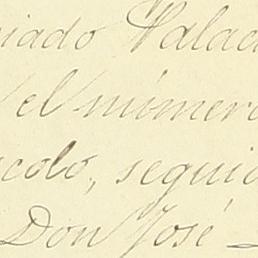 iado Valac
el númer
colo, segui
Don José